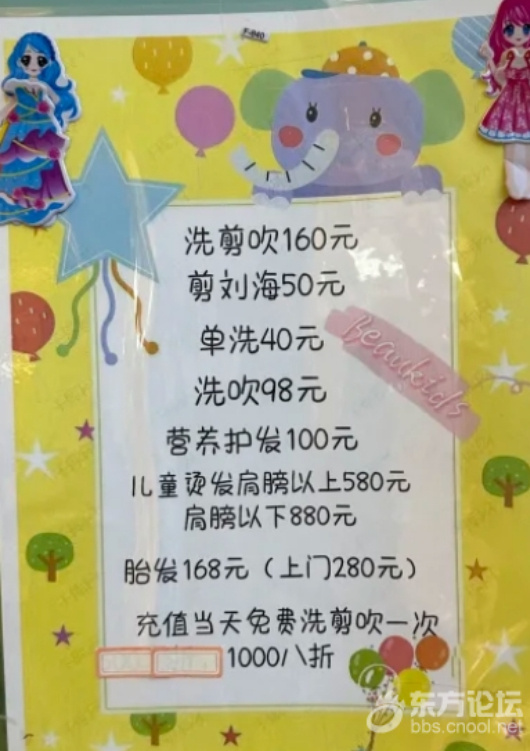 洗剪吹160元
剪刘海50元
单洗40元
Beaukids
洗吹98元
营养护发100元
儿童烫发肩膀以上580元
肩膀以下880元
胎发168元（上门280元）
充值当天免费洗剪吹一次
1000/八折
东方论坛
bbs.cnool.net